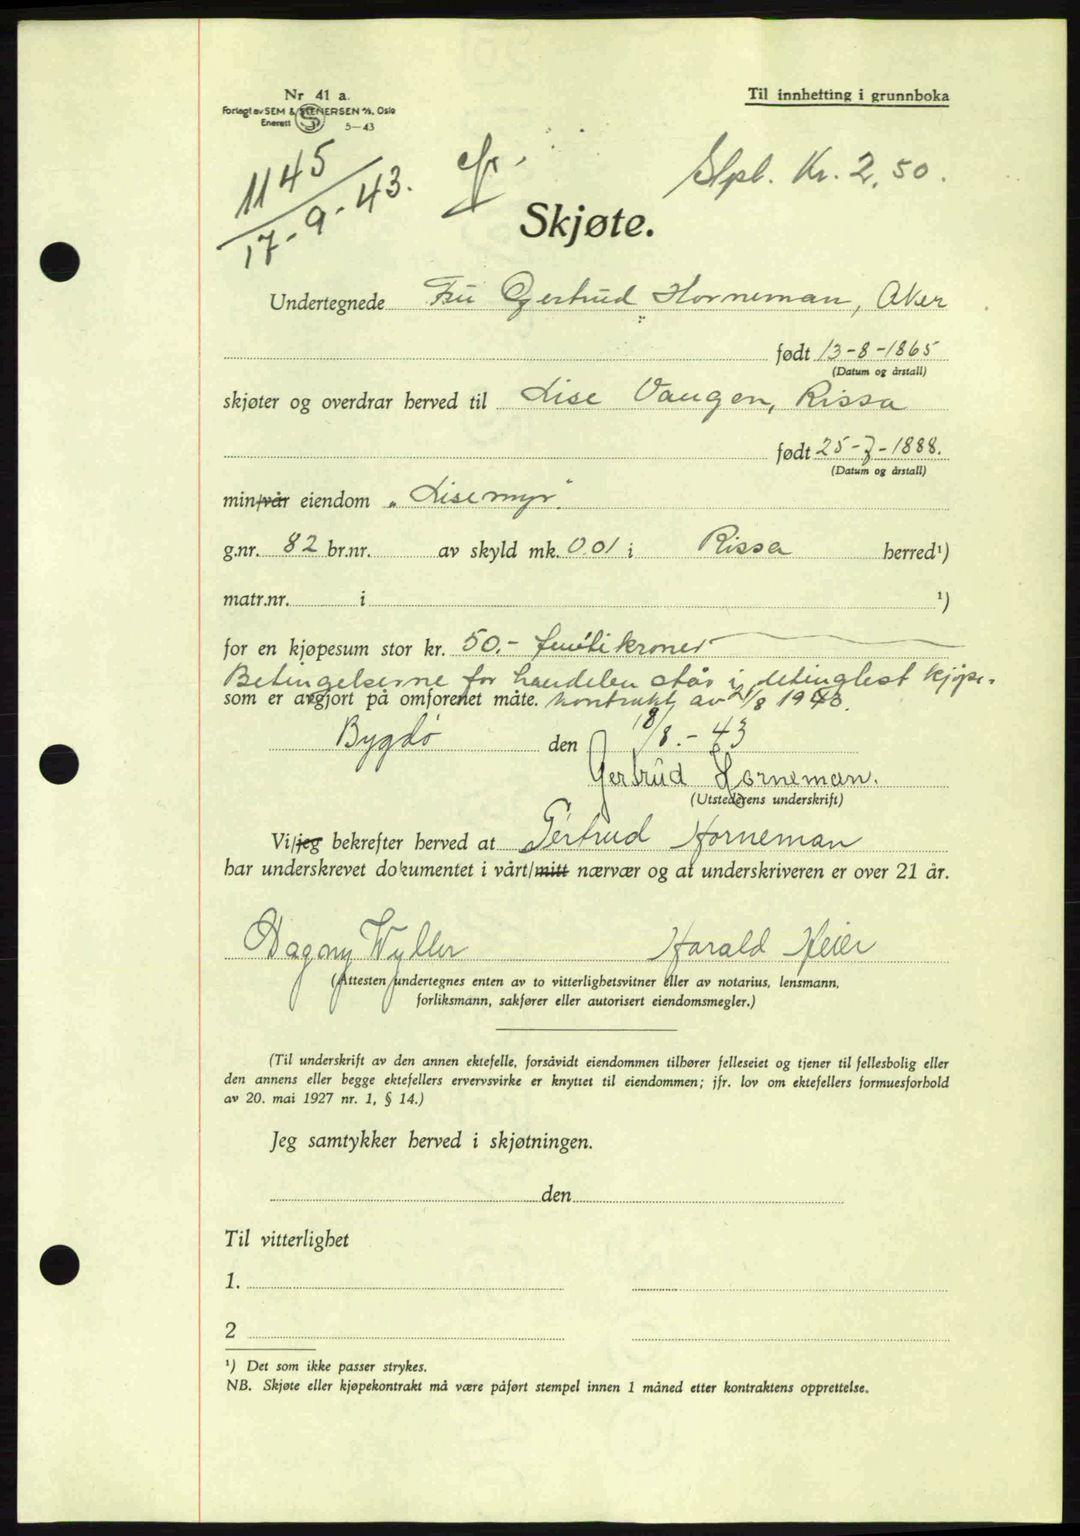 Nr 41 a.
Forlagt av SEM & STENERSEN A/S, Oslo
Enerett 5-43
Til innhefting i grunnboka
1145
17-9-43.
Stpl. Kr. 2,50.
Skjøte.
Undertegnede Fru Gertrud Horneman, Aker
født 13-8-1865
(Datum og årstall)
skjøter og overdrar herved til Lise Vaugen, Rissa
født 25-7-1888.
(Datum og årstall)
min/vår eiendom „Lisemyr".
g.nr. 82 br.nr. av skyld mk. 0.01 i Rissa herred¹)
matr.nr. i ¹)
for en kjøpesum stor kr. 50.- femti kroner
Betingelserne for handelen står i utinglest kjøpe-
som er avgjort på omforenet måte. kontrakt av /8 1943.
Bygdø den 18/8.-43
Gertrud Horneman.
(Utstederens underskrift)
Vi/jeg bekrefter herved at Gertrud Horneman
har underskrevet dokumentet i vårt/mitt nærvær og at underskriveren er over 21 år.
Dagny Wyller Harald Heier
(Attesten undertegnes enten av to vitterlighetsvitner eller av notarius, lensmann,
forliksmann, sakfører eller autorisert eiendomsmegler.)
(Til underskrift av den annen ektefelle, forsåvidt eiendommen tilhører felleseiet og tjener til fellesbolig eller
den annens eller begge ektefellers ervervsvirke er knyttet til eiendommen; jfr. lov om ektefellers formuesforhold
av 20. mai 1927 nr. 1, § 14.)
Jeg samtykker herved i skjøtningen.
den
Til vitterlighet
1.
2
¹) Det som ikke passer strykes.
NB. Skjøte eller kjøpekontrakt må være påført stempel innen 1 måned etter kontraktens opprettelse.